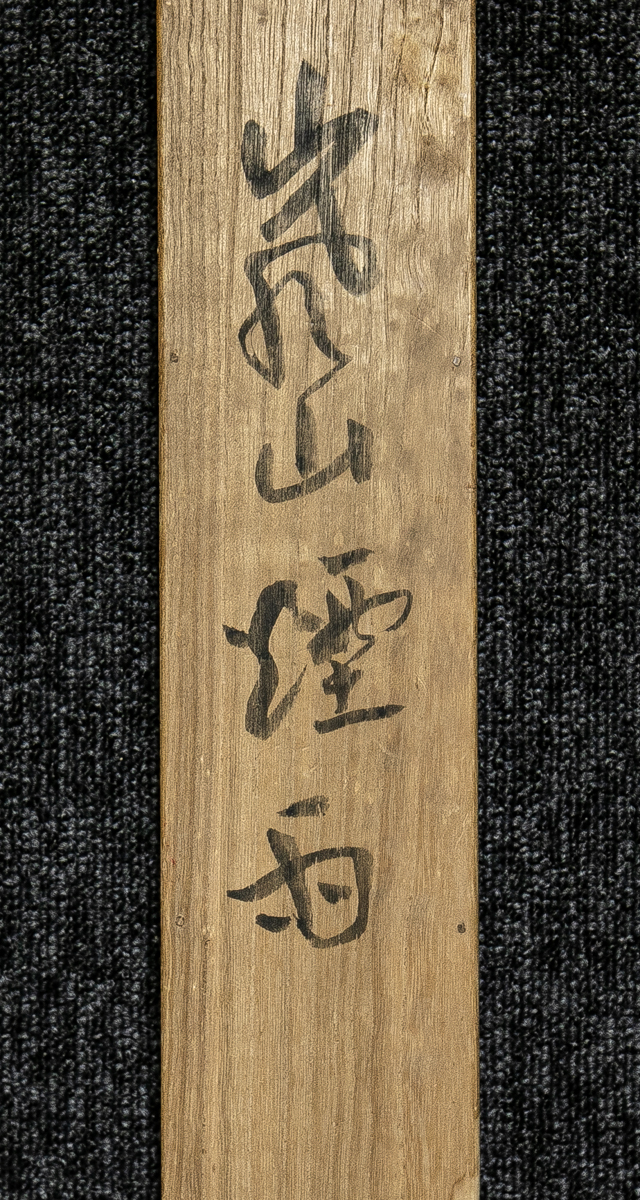 嵐山煙雨